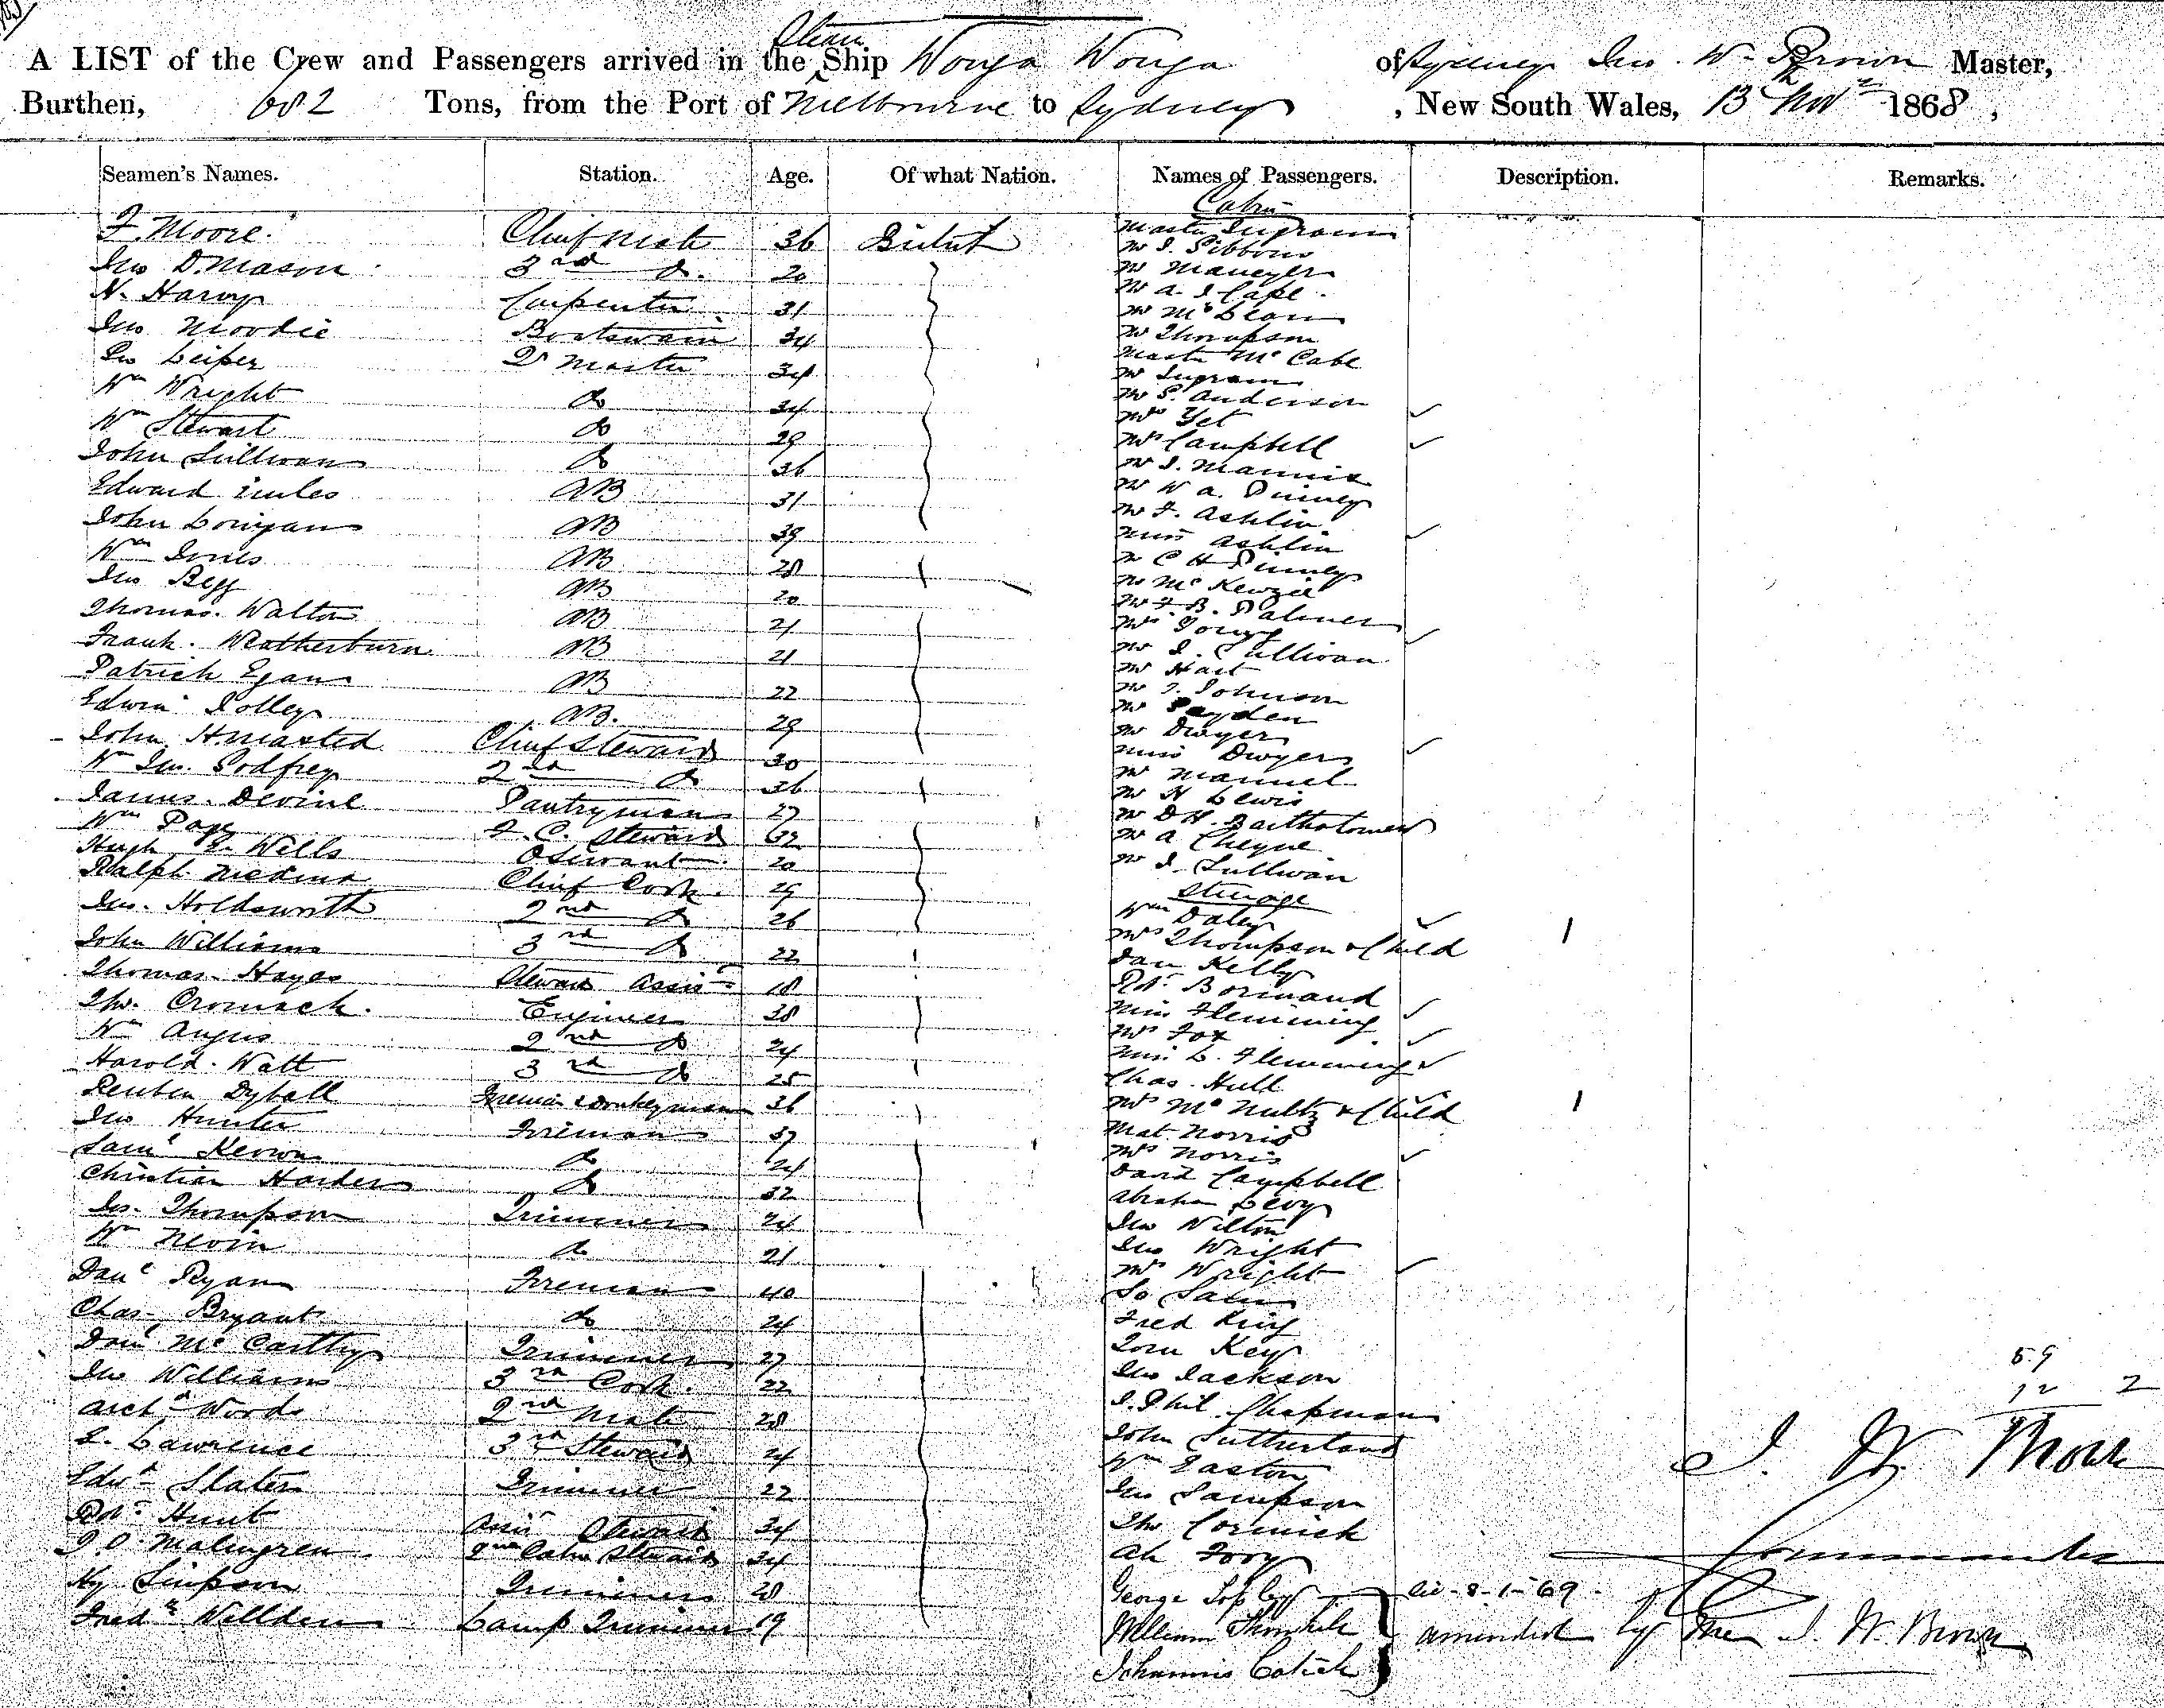 A LIST of the Crew and Passengers arrived in the Steam Ship Wonga Wonga of Sydney Jno. W. Brown Master,
Burthen, 682 Tons, from the Port of Melbourne to Sydney, New South Wales, 13th Novr 1868,
Seamen's Names. Station. Age. Of what Nation. Names of Passengers. Description. Remarks.
Cabin
F. Moore Chief Mate 36 British
Jno D. Mason 3rd Do. 20
N. Harvy Carpenter 31
Jno Moodie Boatswain 34
Leiper Qr Master 34
Wm Wright Do 34
Wm Stewart Do 29
John Sullivan Do 36
Edward AB 31
John Lonigan AB 39
Wm AB 28
Jno Begg AB 20
Thomas Walton AB 21
Frank Weatherburn AB 21
Patrick Egan AB 22
Edwin Jolley AB. 29
John Chief Steward 30
Wm Jno. Godfrey 2nd Do 36
James Devine Pantryman 27
Wm Page F. C. Steward 32
Hugh Wills 20
Ralph Chief Cook 29
Jno. Holdsworth 2nd Do 26
John Williams 3rd Do 22
Thomas Hayes Steward Assist 18
Thos. Cromack Engineer 38
Wm Angus 2nd Do 24
Harold Watt 3rd Do 25
Reuben Dyball Fireman & Donkeyman 36
Jno Hunter Fireman 37
Saml Kerwin Do 24
Christian Harders Do 32
Jas. Thompson Trimmer 24
Wm Nevin Do 21
Danl Ryan Fireman 40
Chas Bryant Do 24
Danl McCarthy Trimmer 27
Jno Williams 3rd Cook 22
Archd Woods 2nd Mate 28
L. Lawrence 3rd Steward 24
Edwd Slater Trimmer 22
Robt Hunt Assist Steward 34
Malingren 2nd Cabin Steward 34
Hy Simpson Trimmer 28
Fredk Willden Lamp Trimmer 19
Master Ingram
Mr J. Gibbons
Mr
Mr A. J. Cape
Mr McLean
Mr Thompson
Master McCabe
Mr Ingram
Mr S. Anderson
Mrs Yet
Mrs Campbell
Mr J. Mannix
Mr W A. Pinney
Mr F. Ashlin
Miss Ashlin
Mr C H Pinney
Mr McKenzie
Mr F. B. Palmer
Mrs Young
Mr J. Sullivan
Mr Hart
Mr J. Johnson
Mr Payden
Mr Dwyer
Miss Dwyer
Mr Manuel
Mr N Lewis
Mr D H. Bartholomew
Mr A Cheyne
Mr J. Sullivan
Steerage
Wm Daley
Mrs Thompson & Child 1
Dan Kelly
Robt Bormand
Miss Flemming
Mrs Fox
Miss L. Flemming
Chas. Hull
Mrs McNulty & Child 1
Mat. Norris
Mrs Norris
David Campbell
Abraham Levy
Jno Wilton
Jno Wright
Mrs Wright
Fred King
Tom Key
Jno Jackson
J. Phil Chapman
John Sutherland
Wm Easton
Jno Sampson
Thos Cormick
Ah Foo
George Sopley
William Thornhill
Johannis
8-1-69
amended by me J. W. Brown
59
12 2
J. W. Brown
Commander